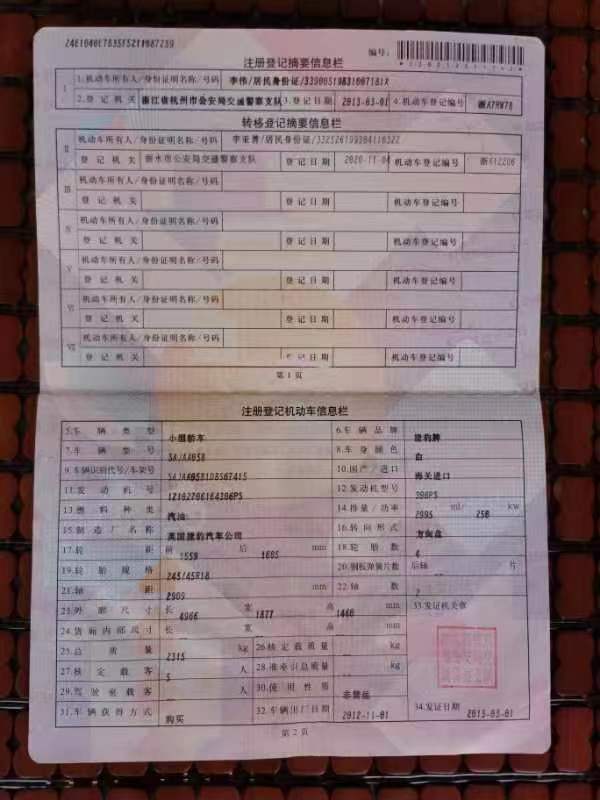 注册登记摘要信息栏
编号:
Ⅰ 1.机动车所有人/身份证明名称/号码 李伟/居民身份证/
2.登记机关 浙江省杭州市公安局交通警察支队 3.登记日期 2013-03-01 4.机动车登记编号
转移登记摘要信息栏
Ⅱ 机动车所有人/身份证明名称/号码 /居民身份证/
登记机关 市公安局交通警察支队 登记日期 2020-11-04 机动车登记编号
Ⅲ 机动车所有人/身份证明名称/号码
登记机关 登记日期 机动车登记编号
Ⅳ 机动车所有人/身份证明名称/号码
登记机关 登记日期 机动车登记编号
Ⅴ 机动车所有人/身份证明名称/号码
登记机关 登记日期 机动车登记编号
Ⅵ 机动车所有人/身份证明名称/号码
登记机关 登记日期 机动车登记编号
Ⅶ 机动车所有人/身份证明名称/号码
登记机关 登记日期 机动车登记编号
第1页
注册登记机动车信息栏
5.车辆类型 小型轿车 6.车辆品牌 捷豹牌
7.车辆型号 8.车身颜色 白
9.车辆识别代号/车架号 10.国产/进口 海关进口
11.发动机号 12.发动机型号 306PS
13.燃料种类 汽油 14.排量/功率 2995 ml/ 250 kw
15.制造厂名称 英国捷豹汽车公司 16.转向形式 方向盘
17.轮距 前 1559 后 1605 mm 18.轮胎数 4
19.轮胎规格 245/45R18 20.钢板弹簧片数 后轴 片
21.轴距 2909 mm 22.轴数 2
23.外廓尺寸 长 4966 宽 1877 高 1460 mm 33.发证机关章
24.货厢内部尺寸 长 宽 高 mm
25.总质量 2315 kg 26.核定载质量 kg
27.核定载客 5 人 28.准牵引总质量 kg
29.驾驶室载客 人 30.使用性质 非营运
31.车辆获得方式 购买 32.车辆出厂日期 2012-11-01 34.发证日期 2013-03-01
第2页